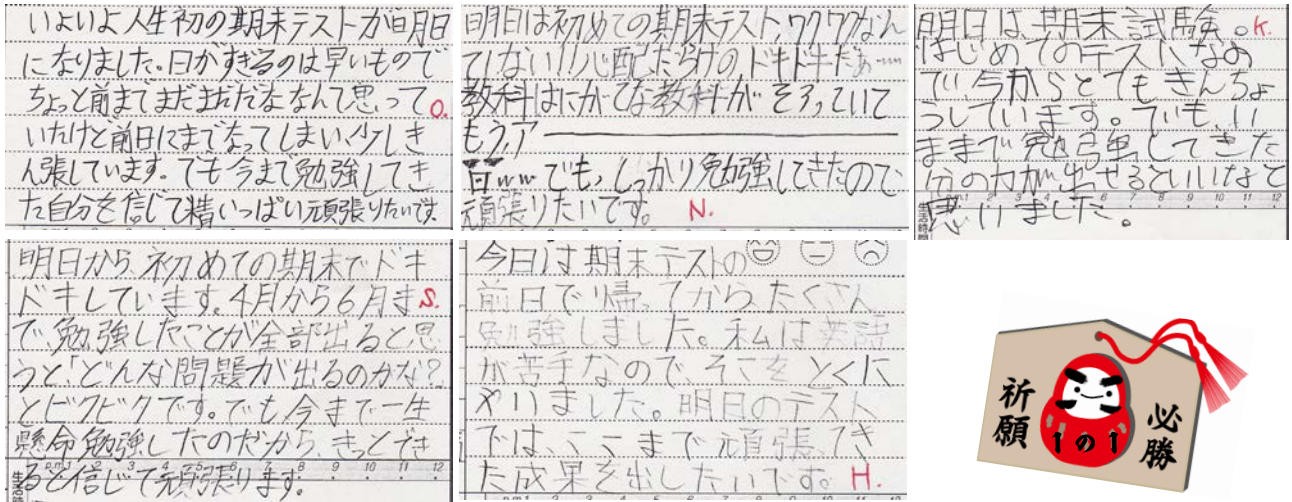 いよいよ人生初の期末テストが明日
になりました。日がすぎるのは早いもので
ちょっと前までまだまだだななんて思って
いたけど前日にまでなってしまい、少しき
ん張しています。でも今まで勉強してき
た自分を信じて精いっぱい頑張りたいです
O.
明日は初めての期末テスト、ワクワクなん
てしない!!心配だらけのドキドキだぁ……
教科はにがてな教科がそろっていて
もう、ア――――
www でも、しっかり勉強してきたので
頑張りたいです。 N.
明日は期末試験。K.
はじめてのテストなの
で今からとてもきんちょ
うしています。でも、い
ままで勉強してきた
分の力が出せるといいなと
思いました。
明日から、初めての期末でドキ
ドキしています。4月から6月ま S.
で、勉強したことが全部出ると思
うと、「どんな問題が出るのかな?
とビクビクです。でも今まで一生
懸命勉強したのだから、きっとでき
ると信じて頑張ります。
今日は期末テストの
前日で帰ってから、たくさん
勉強しました。私は英語
が苦手なので、そこをとくに
やりました。明日のテスト
では、ここまで頑張ってき
た成果を出したいです。 H.
祈願
必勝
1の1